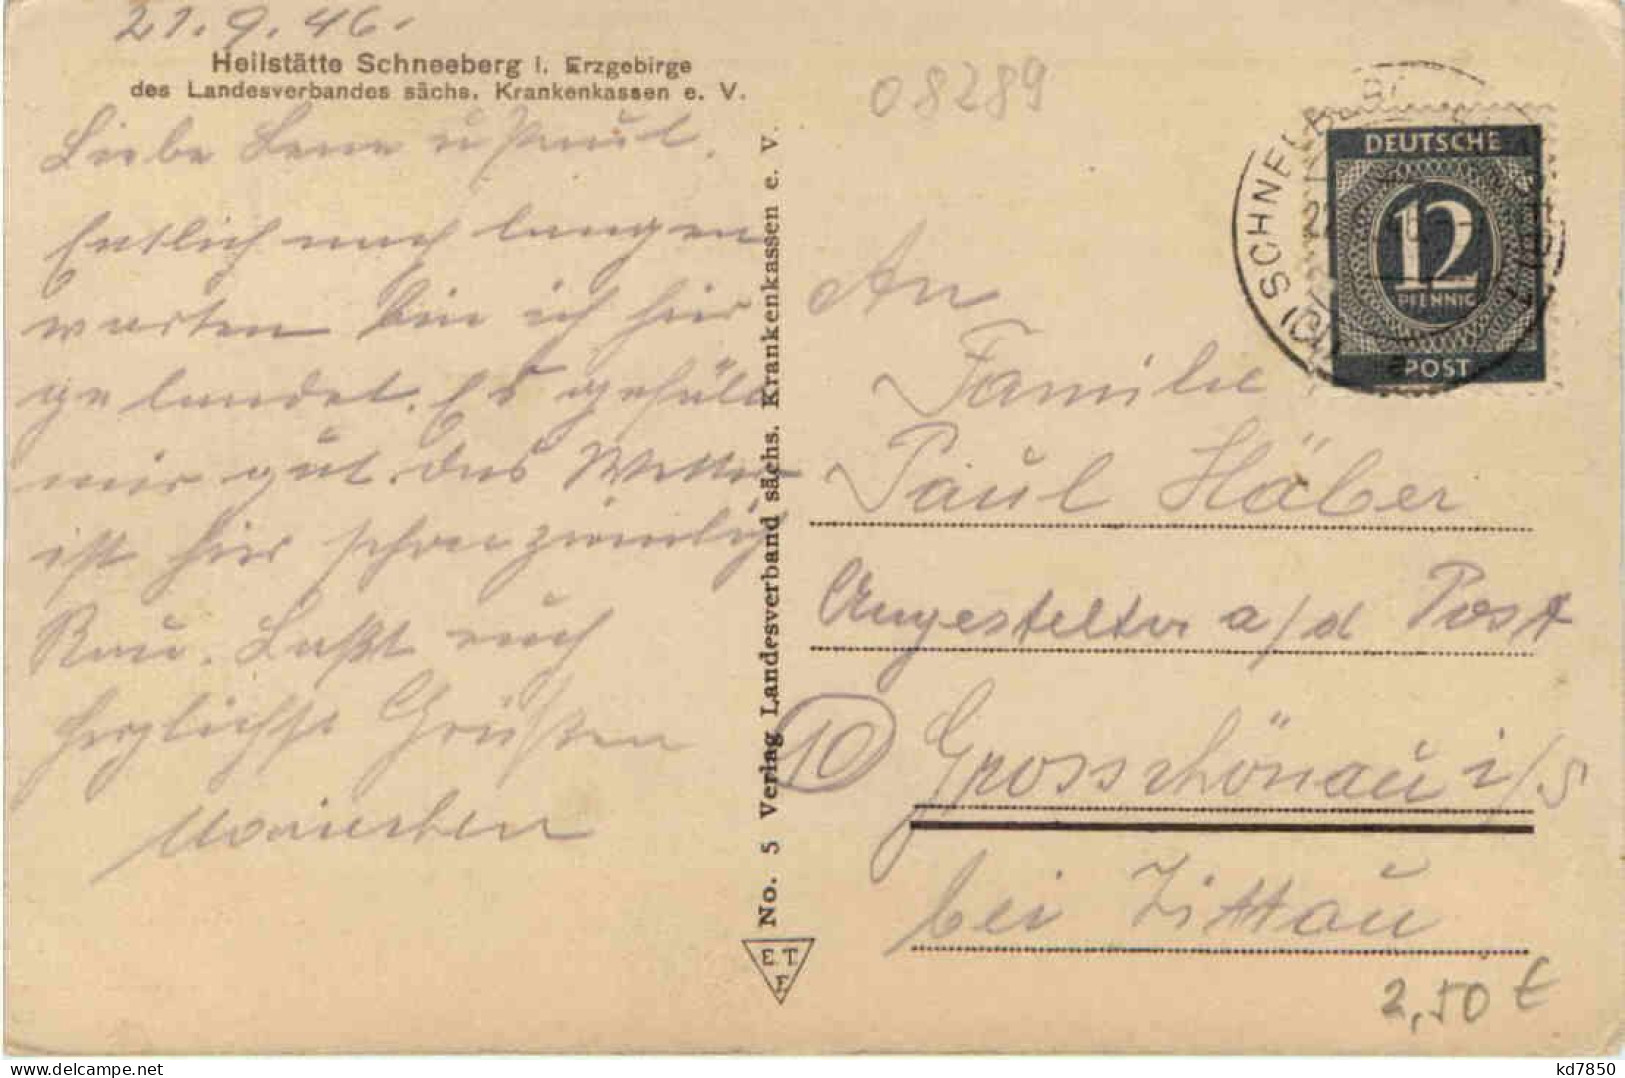 21.9.46.
Heilstätte Schneeberg i. Erzgebirge
des Landesverbandes sächs. Krankenkassen e. V.
Liebe Lene u Paul.
Entlich nach langen
warten bin ich hier
gelandet. Es gefällt
mir gut. Das Wetter
ist hier schon ziemlich
Rau. Laßt euch
herzlichst Grüßen
No. 5 Verlag Landesverband sächs. Krankenkassen e. V.
E. T.
F.
08289
DEUTSCHE
12
PFENNIG
POST
An
Familie
Paul Häber
Angestellter a/d Post
(10) Grossschönau i/S
bei Zittau
2,50 €
kd7850